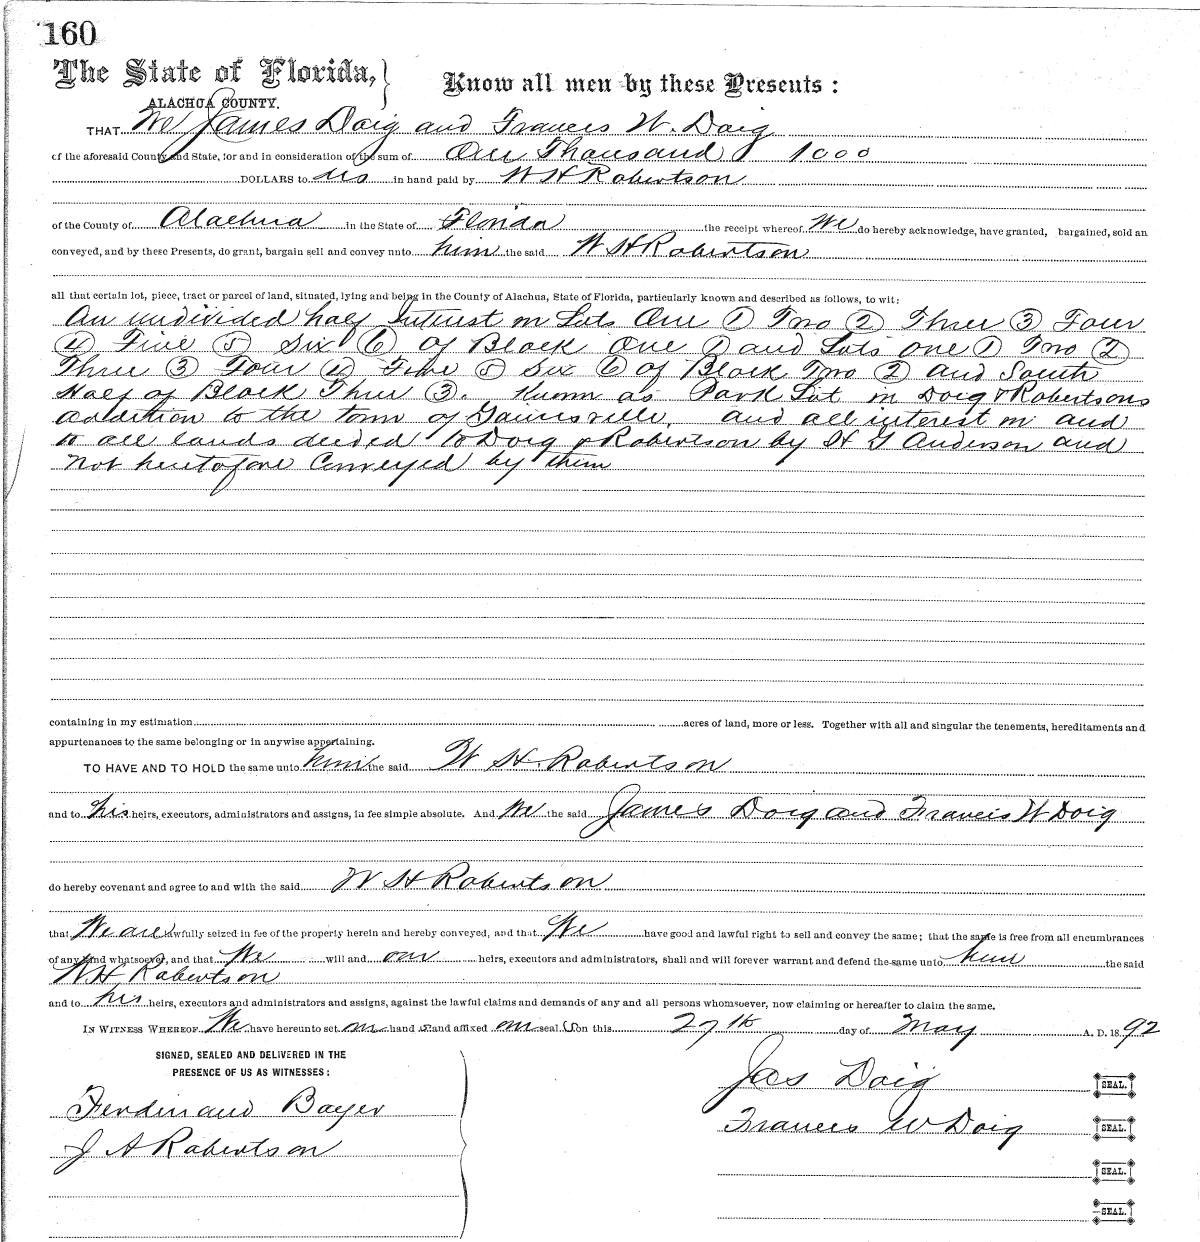 160
The State of Florida, } Know all men by these Presents :
ALACHUA COUNTY.
THAT We James Doig and Frances W. Doig
of the aforesaid County and State, for and in consideration of the sum of One Thousand 1000
DOLLARS to us in hand paid by W H Robertson
of the County of Alachua in the State of Florida the receipt whereof We do hereby acknowledge, have granted, bargained, sold an
conveyed, and by these Presents, do grant, bargain sell and convey unto him the said W H Robertson
all that certain lot, piece, tract or parcel of land, situated, lying and being in the County of Alachua, State of Florida, particularly known and described as follows, to wit:
An undivided half Interest in Lots One ① Two ② Three ③ Four
④ Five ⑤ Six ⑥ of Block One ① and Lots one ① Two ②
Three ③ Four ④ Five ⑤ Six ⑥ of Block Two ② and South
Half of Block Three ③. Known as Park Lot in Doig & Robertsons
addition to the town of Gainesville, and all interest in and
to all lands deeded to Doig & Robertson by H G Anderson and
not heretofore Conveyed by them
containing in my estimation acres of land, more or less. Together with all and singular the tenements, hereditaments and
appurtenances to the same belonging or in anywise appertaining.
TO HAVE AND TO HOLD the same unto him the said W H. Robertson
and to his heirs, executors, administrators and assigns, in fee simple absolute. And We the said James Doig and Francis W Doig
do hereby covenant and agree to and with the said W H Robertson
that We are lawfully seized in fee of the property herein and hereby conveyed, and that We have good and lawful right to sell and convey the same; that the same is free from all encumbrances
of any kind whatsoever, and that We will and our heirs, executors and administrators, shall and will forever warrant and defend the same unto him the said
W H Robertson
and to his heirs, executors and administrators and assigns, against the lawful claims and demands of any and all persons whomsoever, now claiming or hereafter to claim the same.
IN WITNESS WHEREOF We have hereunto set our hand s and affixed our seal s on this 27th day of May A. D. 1892
SIGNED, SEALED AND DELIVERED IN THE
PRESENCE OF US AS WITNESSES:
Ferdinand Bayer
J A Robertson
Jas Doig SEAL.
Frances W Doig SEAL.
SEAL.
SEAL.